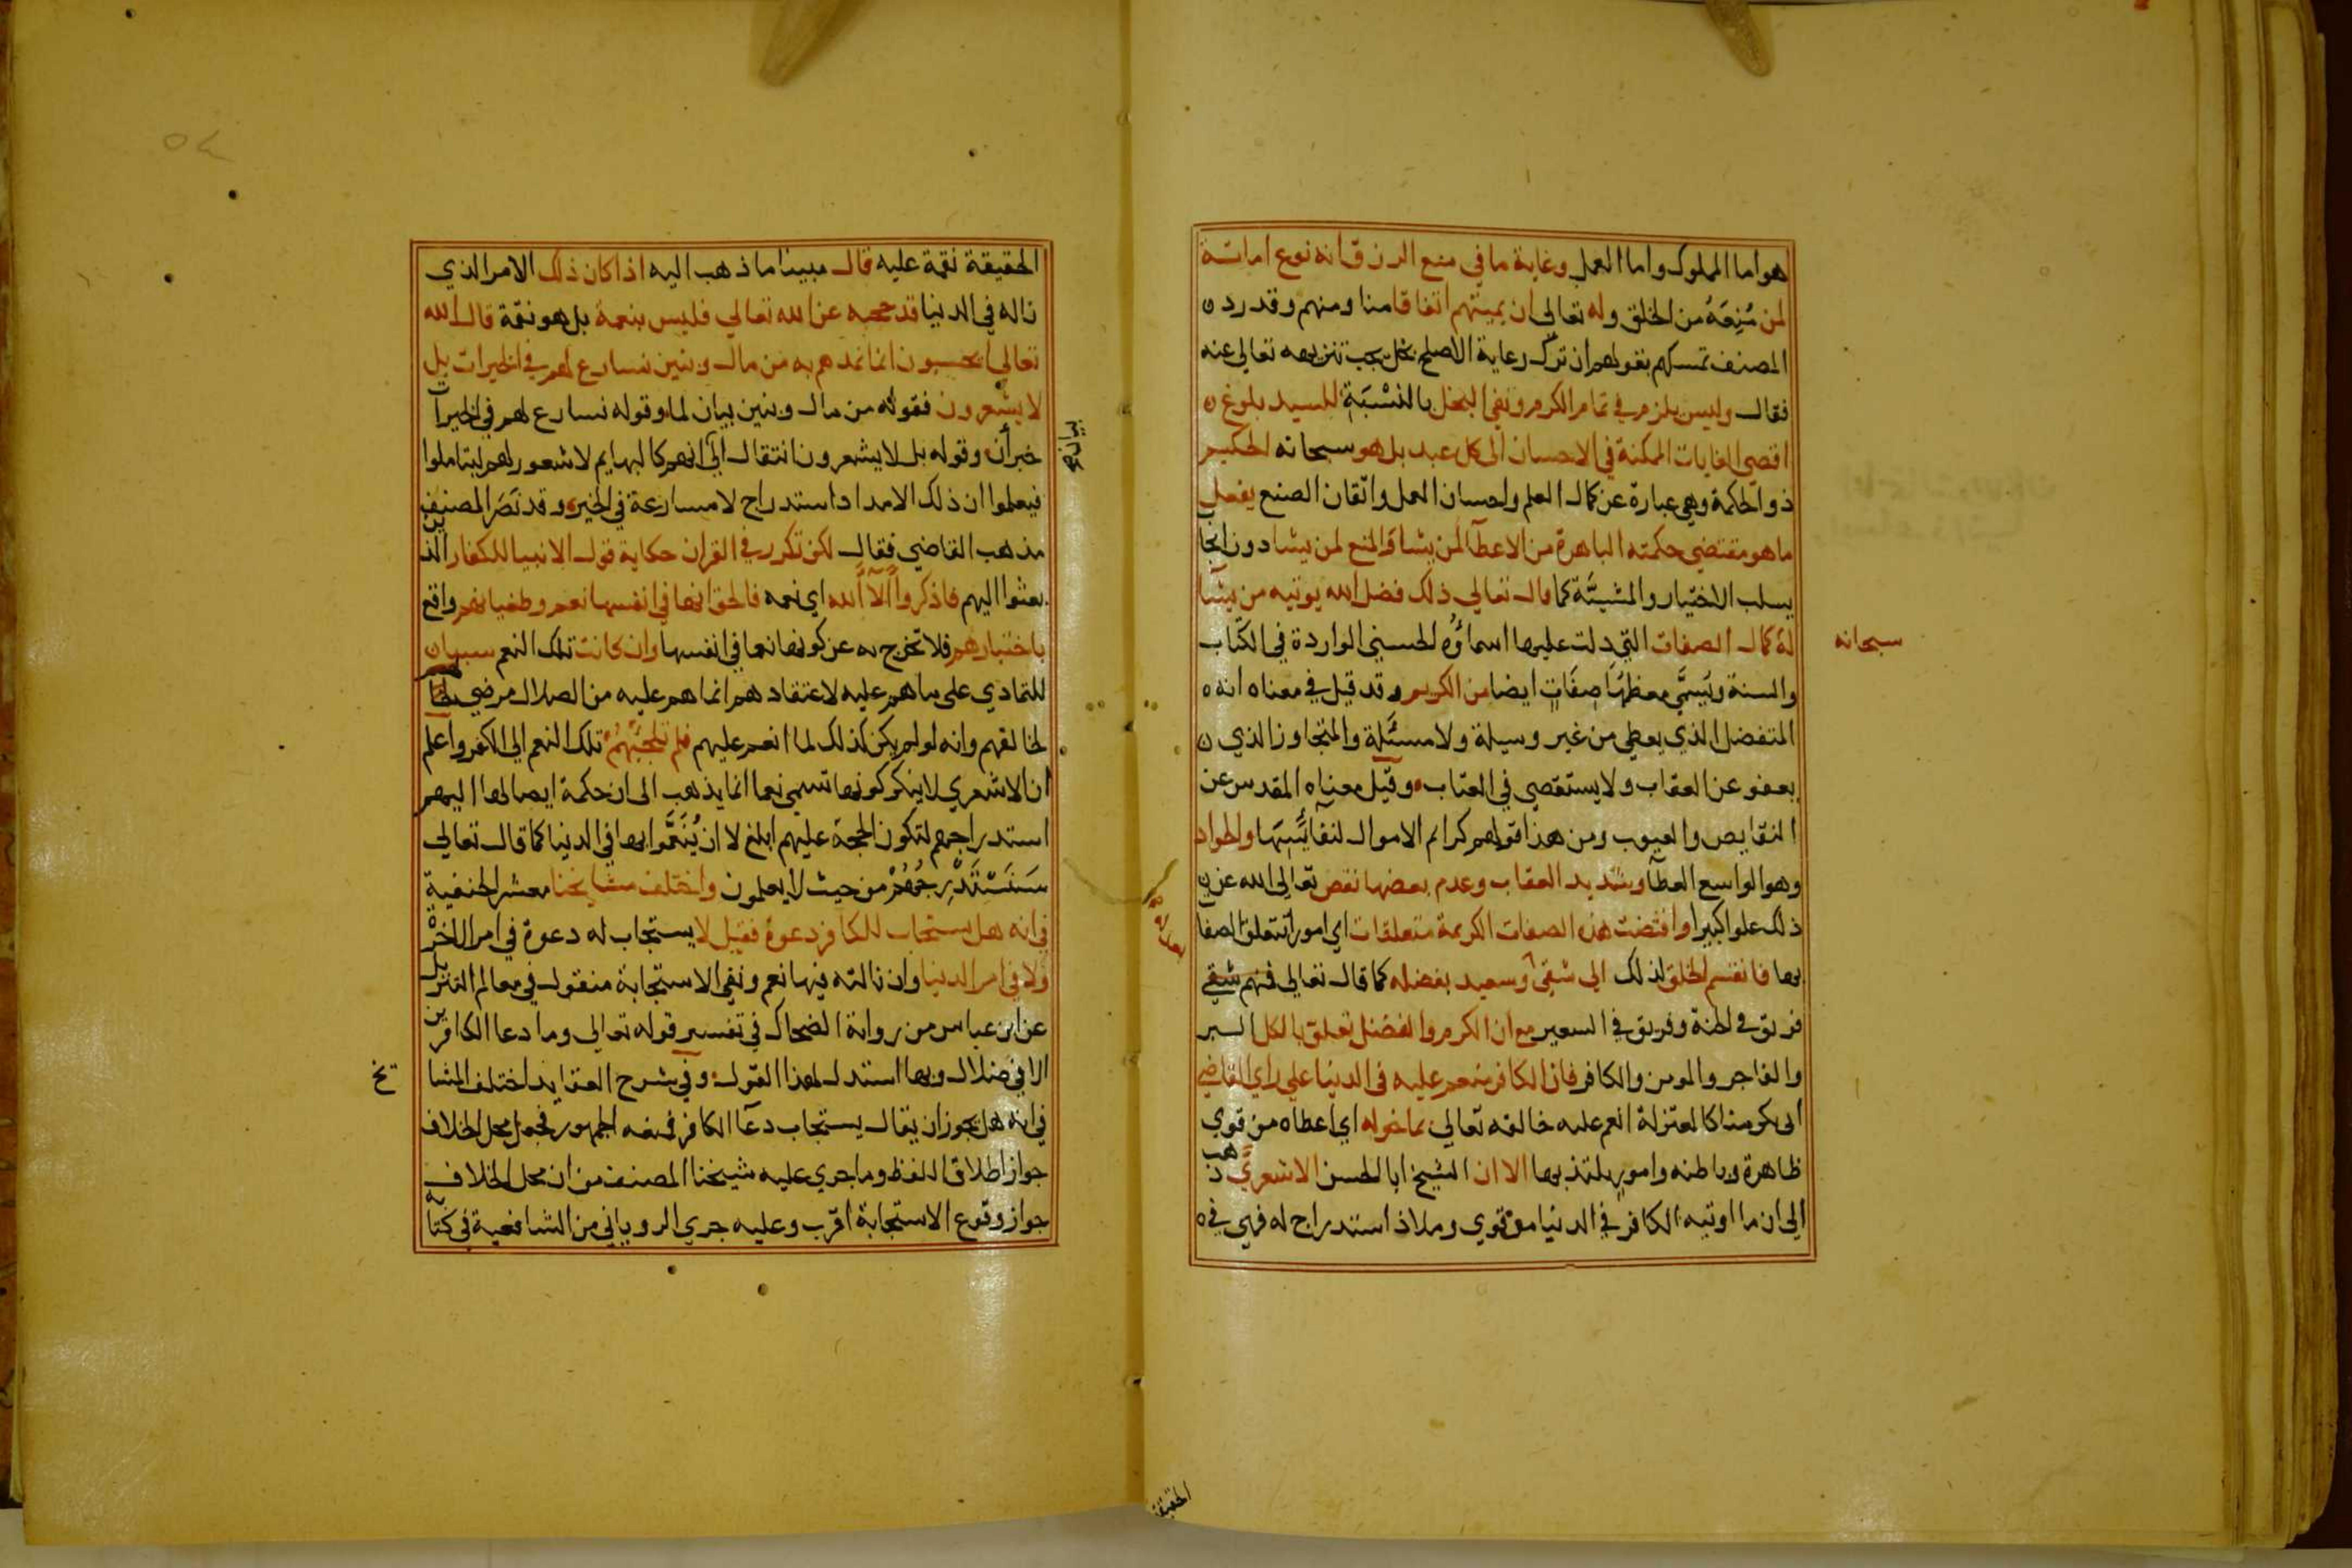 هو اما المملوك واما العمل وغاية ما في منع الرزق انه نوع اماتة
لمن مُنِعَهُ من الخلق وله تعالى ان يميتهم اتفاقا منا ومنهم وقد رد
المصنف تمسكهم بقولهم ان ترك رعاية الاصلح بخل يجب تنزيهه تعالى عنه
فقال وليس يلزم في تمام الكرم ونفى البخل بالنسْبَةِ للسيد بلوغ
اقصى الغايات الممكنة في الاحسان الى كل عبد بل هو سبحانه الحكيم
ذو الحكمة وهي عبارة عن كمال العلم واحسان العمل واتقان الصنع يفعل
ما هو مقتضى حكمته الباهرة من الاعطآ لمن يشا والمنع لمن يشا دون
يسلب الاختيار والمشيئة كما قال تعالى ذلك فضل الله يوتيه من يشا
له كمال الصفات التي دلت عليها اسماؤه الحسنى الواردة في الكتاب
سبحانه
والسنة ويُسمَّى معظمُها صفَاتٍ ايضا من الكريم وقد قيل في معناه انه
المتفضل الذي يعطى من غير وسيلة ولا مسئلة والمتجاوز الذي
يعفو عن العقاب ولا يستقصى في العتاب وقيل معناه المقدس عن
النقايص والعيوب ومن هذا قولهم كرايم الاموال لنفائسها والجواد
وهو الواسع العطآ وشديد العقاب وعدم بعضها نقص تعالى الله عن
ذلك علوا كبيرا واقتضت هذه الصفات الكريمة متعلقات اي امورا تتعلق الصفا
بها فانقسم الخلق لذلك الى شقى وسعيد بفضله كما قال تعالى فمنهم شقي
فريق في الجنة وفريق في السعير مع ان الكرم والفضل تعلق بالكل البر
والفاجر والمومن والكافر فان الكافر منعم عليه في الدنيا على راي القاضي
ابى بكر منا كالمعتزلة انعم عليه خالقه تعالى بما خوله اي اعطاه من قوى
ظاهرة وباطنه وامور يلتذ بها الا ان الشيخ ابا الحسن الاشعري ذهب
الى ان ما اوتيه الكافر في الدنيا من قوى وملاذ استدراج له فهي في
الحقيقة
الحقيقة نقمة عليه قال مبينا ما ذهب اليه اذا كان ذلك الامر الذي
ناله في الدنيا قد حجبه عن الله تعالى فليس بنعمة بل هو نقمة قال الله
تعالى ايحسبون انما نمدهم به من مال وبنين نسارع لهم في الخيرات بل
لا يشعرون فقوله من مال وبنين بيان لما وقوله نسارع لهم في الخيرات
خبر أن وقوله بل لا يشعرون انتقال الى انهم كالبهايم لا شعور لهم ليتاملوا
فيعلموا ان ذلك الامداد استدراج لا مسارعة في الخير وقد نَصَر المصنف
مذهب القاضي فقال لكن تكرر في القران حكاية قول الانبيا للكفار الذين
بعثوا اليهم فاذكروا آلآ الله اي نعمه فالحق انها في انفسها نعم وطغيانهم واقع
باختيارهم فلا تخرج به عن كونها نعما في انفسها وان كانت تلك النعم سببها
للتمادي على ما هم عليه لاعتقادهم انما هم عليه من الضلال مرضي
لخالقهم وانه لو لم يكن كذلك لما انعم عليهم فلم تلجئهم تلك النعم الى الكفر واعلم
ان الاشعري لا ينكر كونها تسمى نعما انما يذهب الى ان حكمة ايصالها اليهم
استدراجهم لتكون الحجة عليهم ابلغ لا ان يُنَعَّموا بها في الدنيا كما قال تعالى
سَنَسْتَدْرِجُهُمْ من حيث لا يعلمون واختلف مشايخنا معشر الحنفية
في انه هل يستجاب للكافر دعوة فقيل لا يستجاب له دعوة في امر الاخرة
ولا في امر الدنيا وان نالته فيها نعم ونفى الاستجابة منقول في معالم التنزيل
عن ابن عباس من رواية الضحاك في تفسير قوله تعالى وما دعا الكافرين
الا في ضلال وبها استدل لهذا القول وفي شرح العقايد اختلف المشا
يخ
في انه هل يجوز ان يقال يستجاب دعآ الكافر فمنعه الجمهور فجعل محل الخلاف
جواز اطلاق اللفظ وما جرى عليه شيخنا المصنف من ان محل الخلاف
جواز وقوع الاستجابة اقرب وعليه جرى الروياني من الشافعية في كتابه